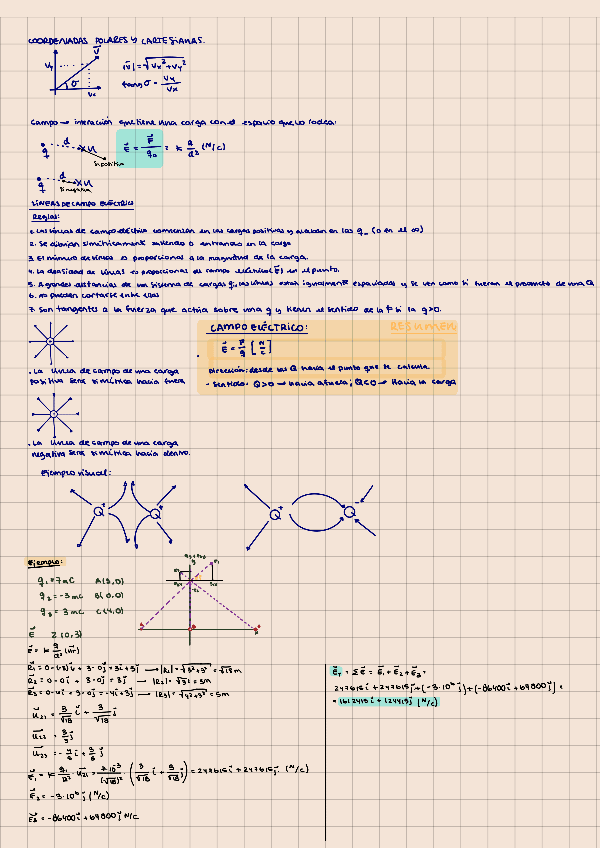 COORDENADAS POLARES Y CARTESIANAS.
|v⃗| = √(Vx² + Vy²)
tang σ = Vy/Vx
Campo → interacción que tiene una carga con el espacio que lo rodea:
E⃗ = F⃗/q₀ = K Q/d² (N/C)
d
q
Si positiva
d
q
Si negativa
LÍNEAS DE CAMPO ELÉCTRICO
Reglas:
1. Las líneas de campo eléctrico comienzan en las cargas positivas y acaban en las q_ (o en el ∞)
2. Se dibujan simétricamente saliendo o entrando en la carga
3. El número de líneas es proporcional a la magnitud de la carga.
4. La densidad de líneas es proporcional al campo eléctrico (E⃗) en el punto.
5. A grandes distancias de un sistema de cargas q, las líneas están igualmente espaciadas y se ven como si fueran el producto de una Q
6. no pueden cortarse entre ellas
7. Son tangentes a la fuerza que actúa sobre una q y tienen el sentido de la F si la q>0.
RESUMEN
CAMPO ELÉCTRICO:
E⃗ = F⃗/q [N/C]
Dirección: desde la Q hacia el punto que se calcula
- Sentido: Q>0 → hacia afuera; Q<0 → hacia la carga
. La línea de campo de una carga
positiva será simétrica hacia fuera
. La línea de campo de una carga
negativa será simétrica hacia dentro.
Ejemplo visual:
Q⁺ Q⁺ Q⁺ Q⁻
Ejemplo:
q₁ = 7mC
q₂ = -3mC B(0,0)
q₃ = 3mC C(4,0)
E⃗ Z(0,3)
|R₁| = √(3²+3²) = √18m
|R₂| = √3² = 3m
|R₃| = √(4²+3²) = 5m
U⃗₂₁ = 3/√18 i⃗ + 3/√18 j⃗
U⃗₂₂ = 3/3 j⃗
U⃗₂₃ = -4/5 i⃗ + 3/5 j⃗
E⃗₂ = -3·10⁶ j⃗ (N/C)
E⃗₃ = -86400 i⃗ + 64800 j⃗ N/C
E⃗T = ΣE⃗ = E⃗₁ + E⃗₂ + E⃗₃ =